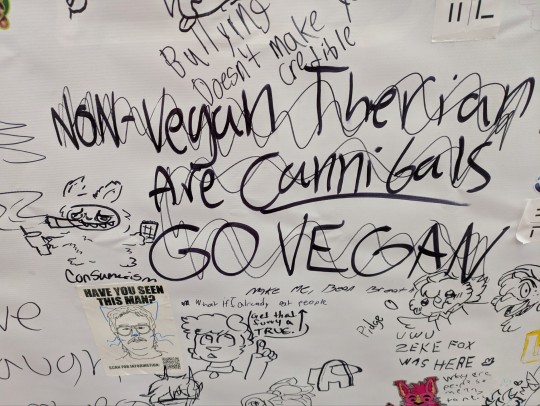 Bullying
Doesn't make
credible
Non-Vegan Therian
Are Cannibals
GO VEGAN
Consumerism
HAVE YOU SEEN
THIS MAN?
SCAN FOR INFORMATION
What if I already eat people
Get that
funny a
TRUE.
Pidge
UWU
ZEKE FOX
WAS HERE
Why are